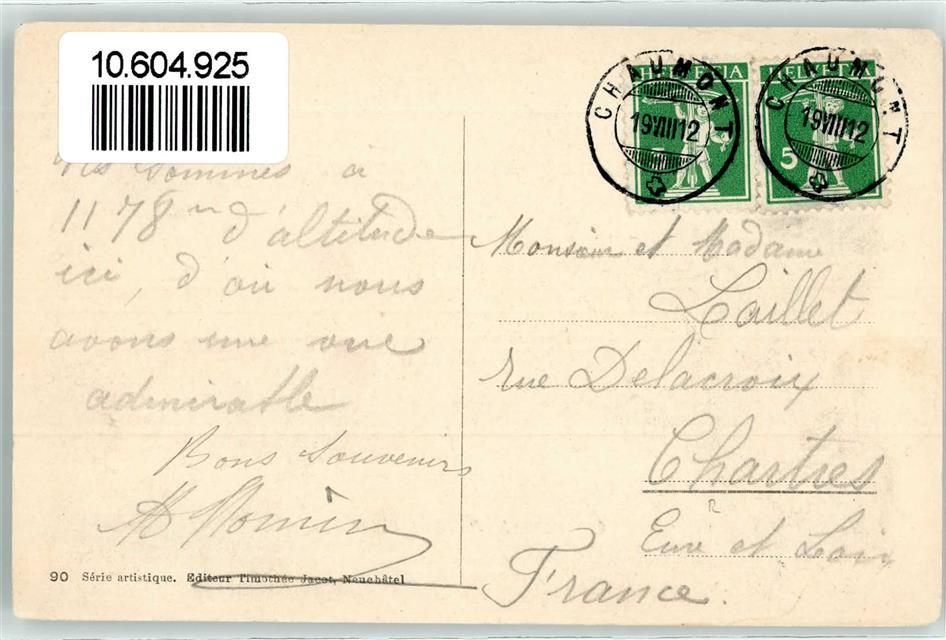 10.604.925
HELVETIA
HELVETIA
CHAUMONT
19 VIII 12
CHAUMONT
19 VIII 12
5
sommes à
1178 m d'altitude
ici, d'où nous
avons une vue
admirable
Bons Souvenirs
Monsieur et Madame
Loillet
rue Delacroix
Chartres
Eure et Loir
France.
90 Série artistique. Editeur Timothée Jacot, Neuchâtel